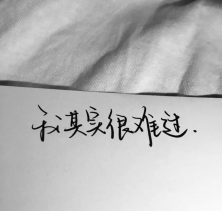 我其实很难过.